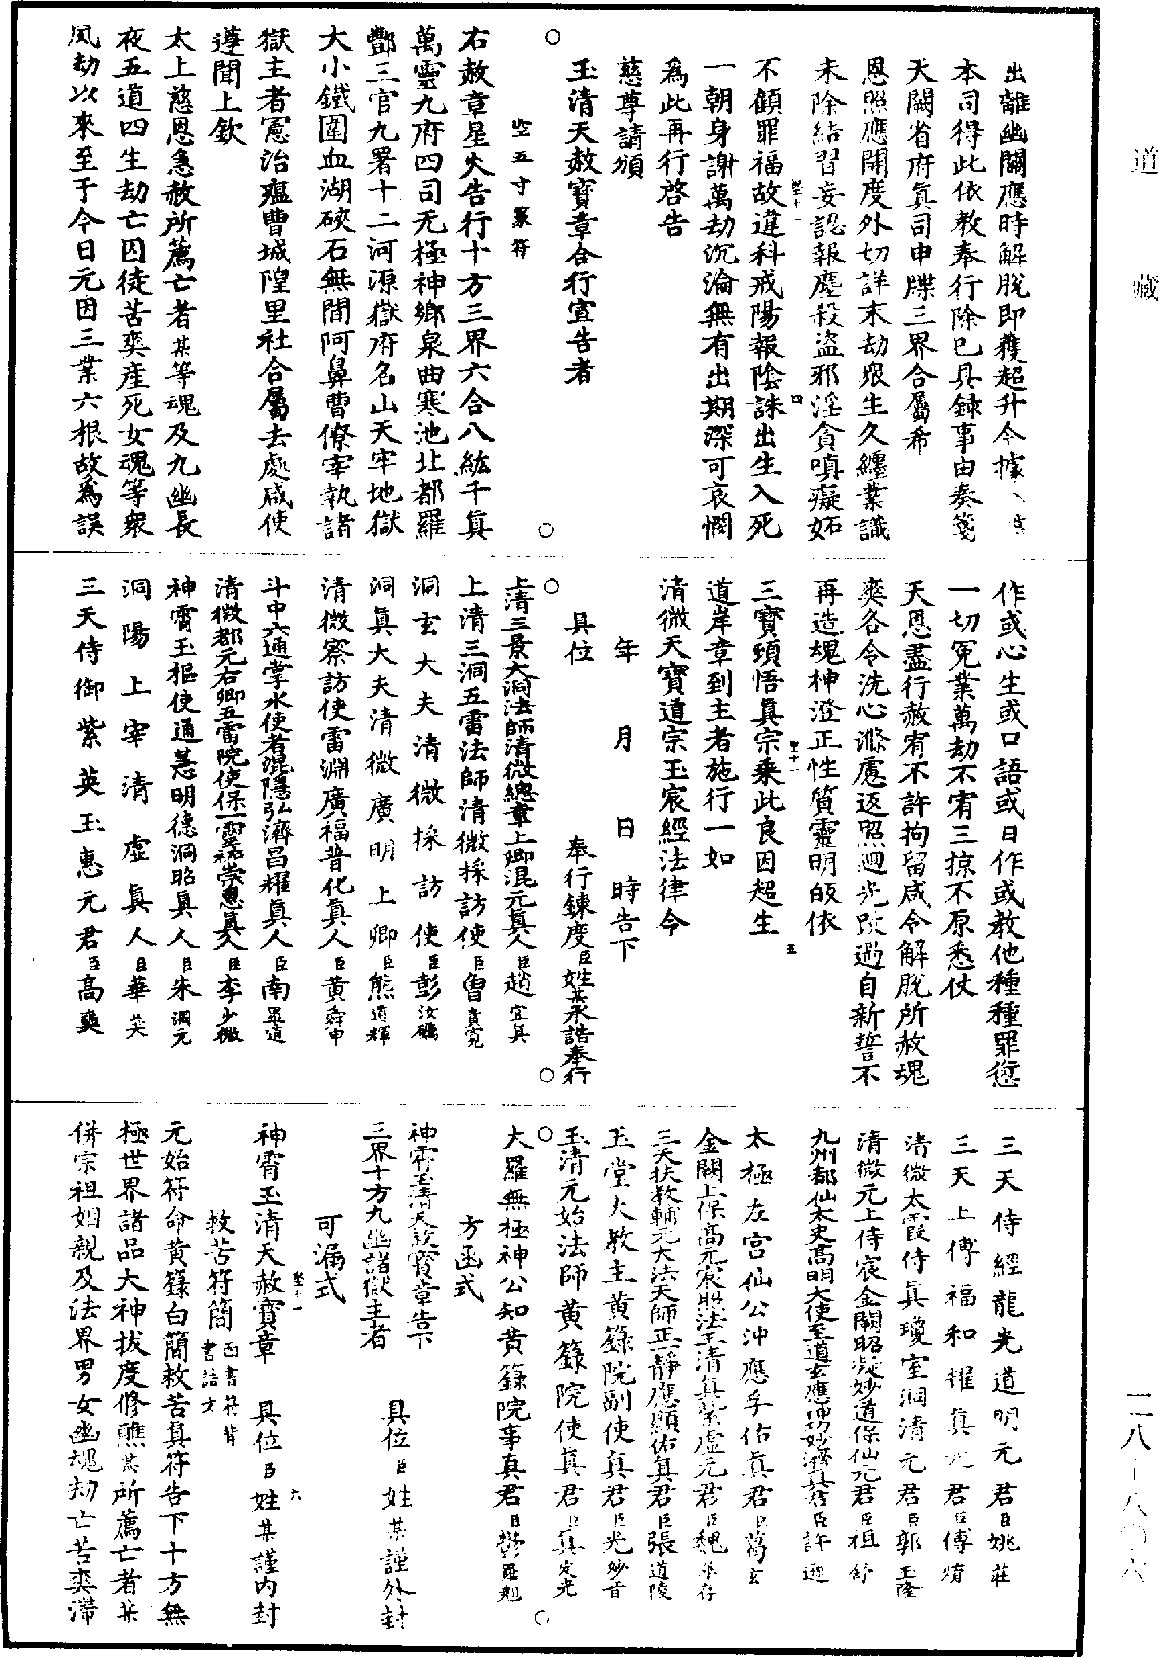 道藏
二八—八〇六
出離幽關應時解脫即獲超升今據
本司得此依教奉行除已具錄事由奏箋
天闕省府真司申牒三界合屬希
恩照應開度外切詳末劫眾生久纏業識
未除結習妄認報塵殺盜邪淫貪嗔癡妬
不顧罪福故違科戒陽報陰誅出生入死
一朝身謝萬劫沉淪無有出期深可哀憫
為此再行啓告
慈尊請頒
玉清天赦寶章合行宣告者
空五寸篆符
右赦章星火告行十方三界六合八紘千真
萬靈九府四司无極神鄉泉曲寒池北都羅
酆三官九署十二河源獄府名山天牢地獄
大小鐵圍血湖硤石無間阿鼻曹僚宰執諸
獄主者憲治瘟曹城隍里社合屬去處咸使
遵聞上欽
太上慈恩急赦所薦亡者某等魂及九幽長
夜五道四生劫亡囚徒苦爽產死女魂等眾
風劫以來至于今日元因三業六根故為誤
作或心生或口語或日作或教他種種罪愆
一切冤業萬劫不宥三掠不原悉仗
天恩盡行赦宥不許拘留咸令解脫所赦魂
爽各令洗心滌慮返照迴光改過自新誓不
再造魂神澄正性質靈明皈依
三寶頓悟真宗乘此良因超生
道岸章到主者施行一如
清微天寶道宗玉宸經法律令
年 月 日 時告下
具位 奉行鍊度臣姓某承誥奉行
上清三景大洞法師清微總章上卿混元真人臣趙宜真
上清三洞五雷法師清微採訪使臣曾貴寬
洞玄大夫清微採訪使臣彭汝礪
洞真大夫清微廣明上卿臣熊道輝
清微察訪使雷淵廣福普化真人臣黃舜申
斗中六通掌水使者混隱弘濟昌耀真人臣南畢道
清微都元右卿五雷院使保一靈　崇惠真人臣李少微
神霄玉樞使通慧明德洞昭真人臣朱洞元
洞陽上宰清虛真人臣華英
三天侍御紫英玉惠元君臣高奭
三天侍經龍光道明元君臣姚莊
三天上傅福和　真元君臣傅　
清微太霞侍真瓊室洞清元君臣郭玉隆
清微元上侍宸金闕昭凝妙道保仙元君臣祖舒
九州都仙太史高明大使至道玄應神功妙濟真君臣許遜
太極左宮仙公沖應孚佑真君臣葛玄
金闕上保高元宸照法王清真紫虛元君臣魏華存
三天扶教輔元大法天師正一靜應顯佑真君臣張道陵
玉堂大教主黃籙院副使真君臣光妙音
玉清元始法師黃籙院使真君臣真定光
大羅無極神公知黃籙院事真君臣鬱羅翹
方函式
神霄玉清天赦寶章告下
三界十方九幽諸獄主者 具位臣姓某謹外封
可漏式
神霄玉清天赦寶章 具位臣姓某謹內封
救苦符簡面書符背書誥文
元始符命黃籙白簡救苦真符告下十方無
極世界諸品大神拔度修醮某所薦亡者某
併宗祖姻親及法界男女幽魂劫亡苦爽滯